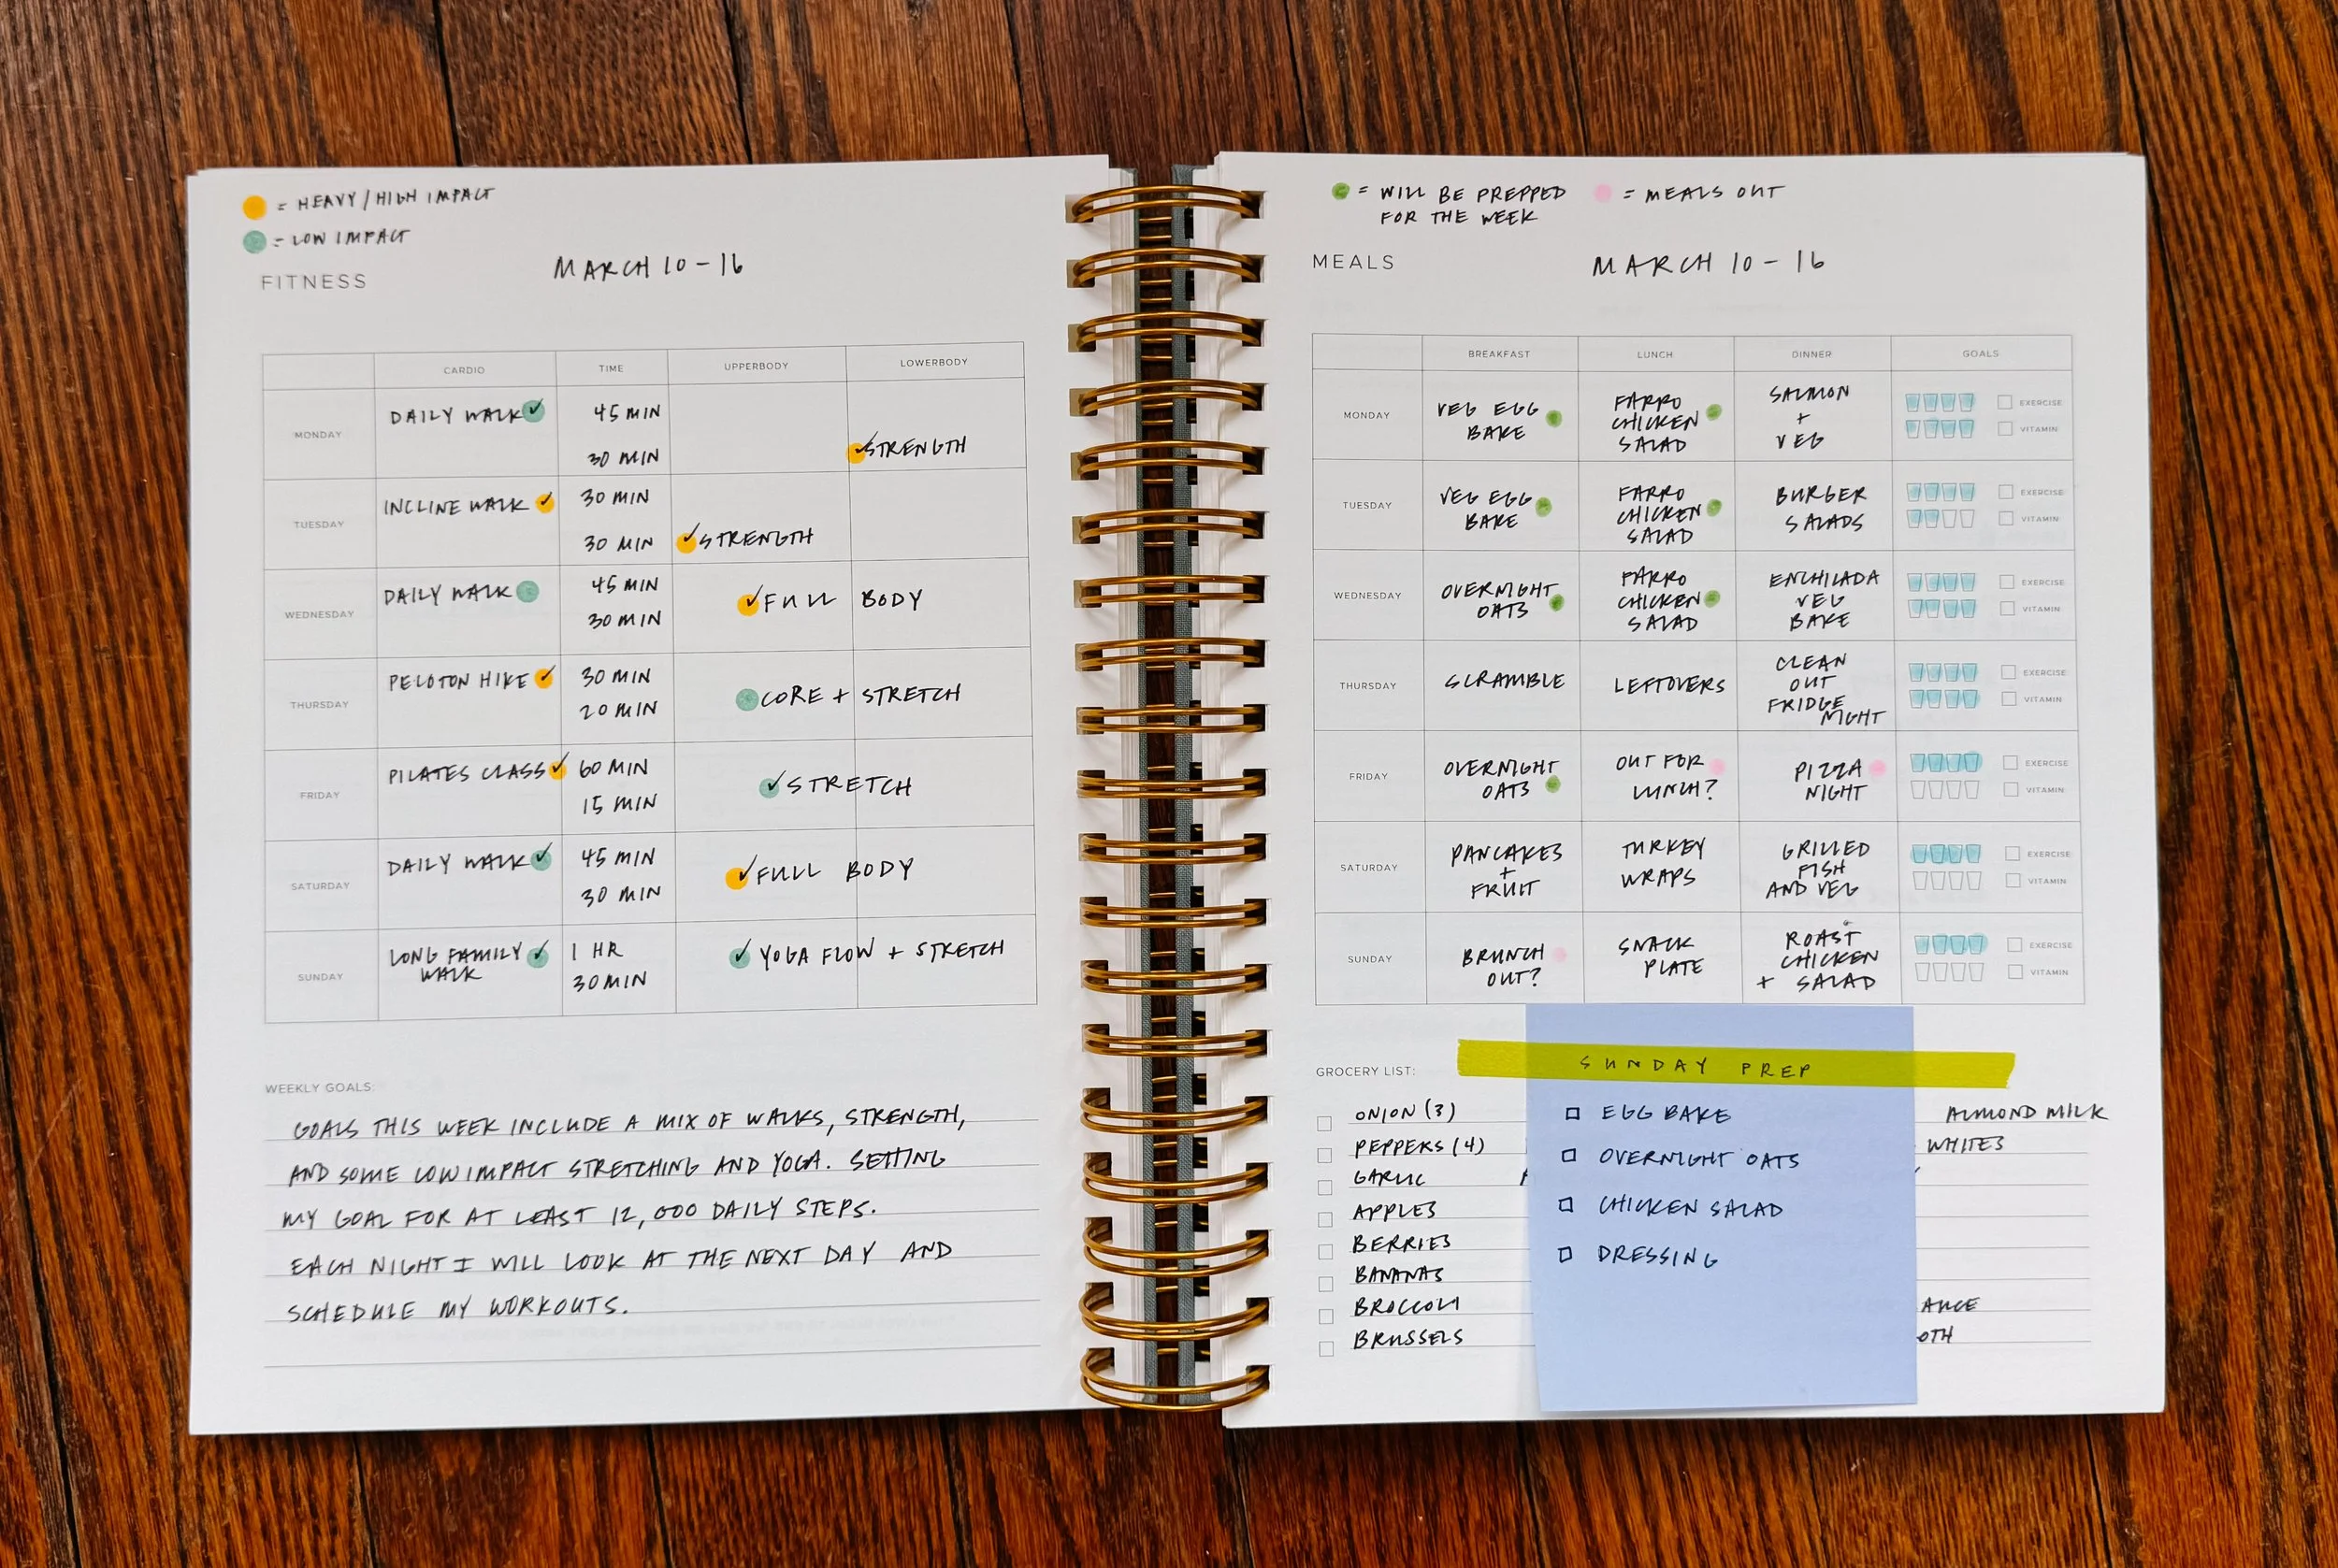 = HEAVY / HIGH IMPACT
= LOW IMPACT
FITNESS
MARCH 10 - 16
CARDIO TIME UPPERBODY LOWERBODY
MONDAY
DAILY WALK 45 MIN
30 MIN STRENGTH
TUESDAY
INCLINE WALK 30 MIN
30 MIN STRENGTH
WEDNESDAY
DAILY WALK 45 MIN
30 MIN FULL BODY
THURSDAY
PELOTON HIKE 30 MIN
20 MIN CORE + STRETCH
FRIDAY
PILATES CLASS 60 MIN
15 MIN STRETCH
SATURDAY
DAILY WALK 45 MIN
30 MIN FULL BODY
SUNDAY
LONG FAMILY
WALK
1 HR
30 MIN
YOGA FLOW + STRETCH
WEEKLY GOALS:
GOALS THIS WEEK INCLUDE A MIX OF WALKS, STRENGTH,
AND SOME LOW IMPACT STRETCHING AND YOGA. SETTING
MY GOAL FOR AT LEAST 12,000 DAILY STEPS.
EACH NIGHT I WILL LOOK AT THE NEXT DAY AND
SCHEDULE MY WORKOUTS.
= WILL BE PREPPED
FOR THE WEEK
= MEALS OUT
MEALS
MARCH 10 - 16
BREAKFAST LUNCH DINNER GOALS
MONDAY
VEG EGG
BAKE
FARRO
CHICKEN
SALAD
SALMON
+
VEG
EXERCISE
VITAMIN
TUESDAY
VEG EGG
BAKE
FARRO
CHICKEN
SALAD
BURGER
SALADS
EXERCISE
VITAMIN
WEDNESDAY
OVERNIGHT
OATS
FARRO
CHICKEN
SALAD
ENCHILADA
VEG
BAKE
EXERCISE
VITAMIN
THURSDAY
SCRAMBLE
LEFTOVERS
CLEAN
OUT
FRIDGE
NIGHT
EXERCISE
VITAMIN
FRIDAY
OVERNIGHT
OATS
OUT FOR
LUNCH?
PIZZA
NIGHT
EXERCISE
VITAMIN
SATURDAY
PANCAKES
+
FRUIT
TURKEY
WRAPS
GRILLED
FISH
AND VEG
EXERCISE
VITAMIN
SUNDAY
BRUNCH
OUT?
SNACK
PLATE
ROAST
CHICKEN
+ SALAD
EXERCISE
VITAMIN
GROCERY LIST:
ONION (3)
PEPPERS (4)
GARLIC
APPLES
BERRIES
BANANAS
BROCCOLI
BRUSSELS
SUNDAY PREP
EGG BAKE
OVERNIGHT OATS
CHICKEN SALAD
DRESSING
ALMOND MILK
WHITES